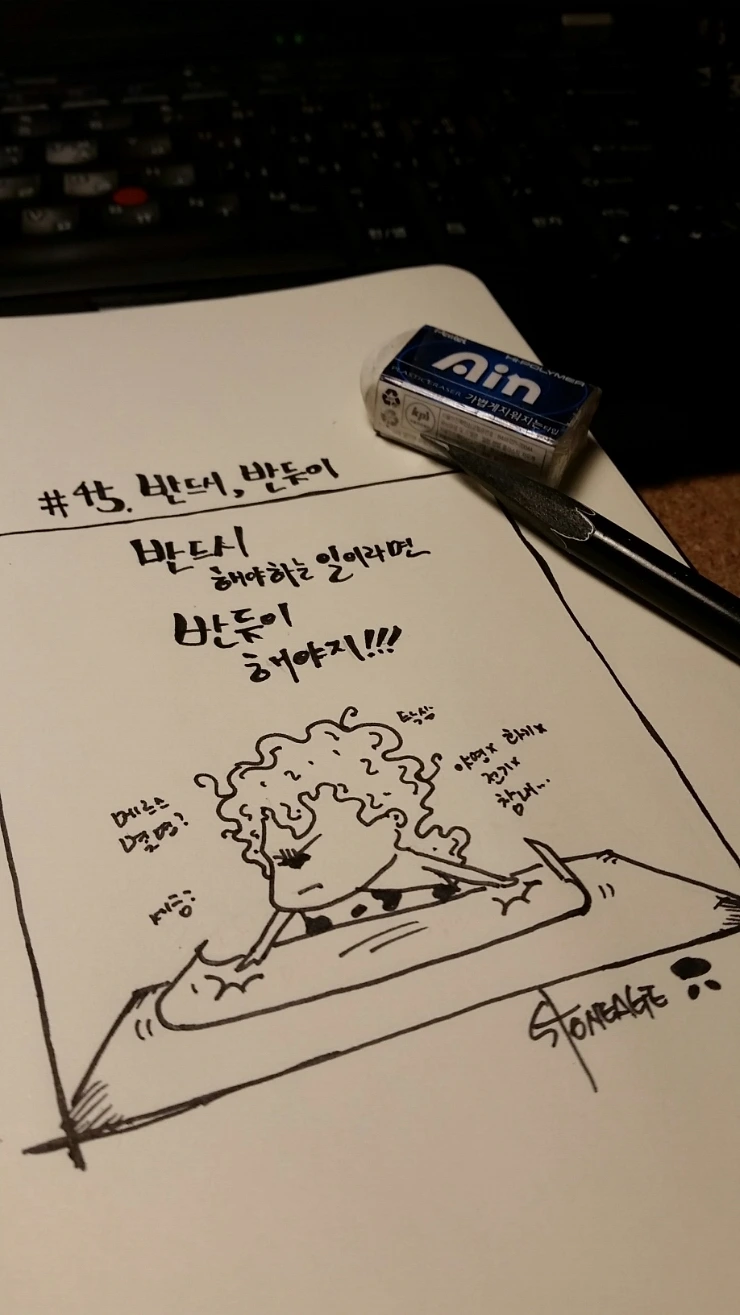 Pentel
HI-POLYMER
Ain
PLASTIC ERASER 가볍게 지워지는 타입
kpl
#45. 반드시, 반듯이
반드시
해야하는 일이라면
반듯이
해야지!!!
메르스
야면x 하기x
전기x
참내...
STONEAGE